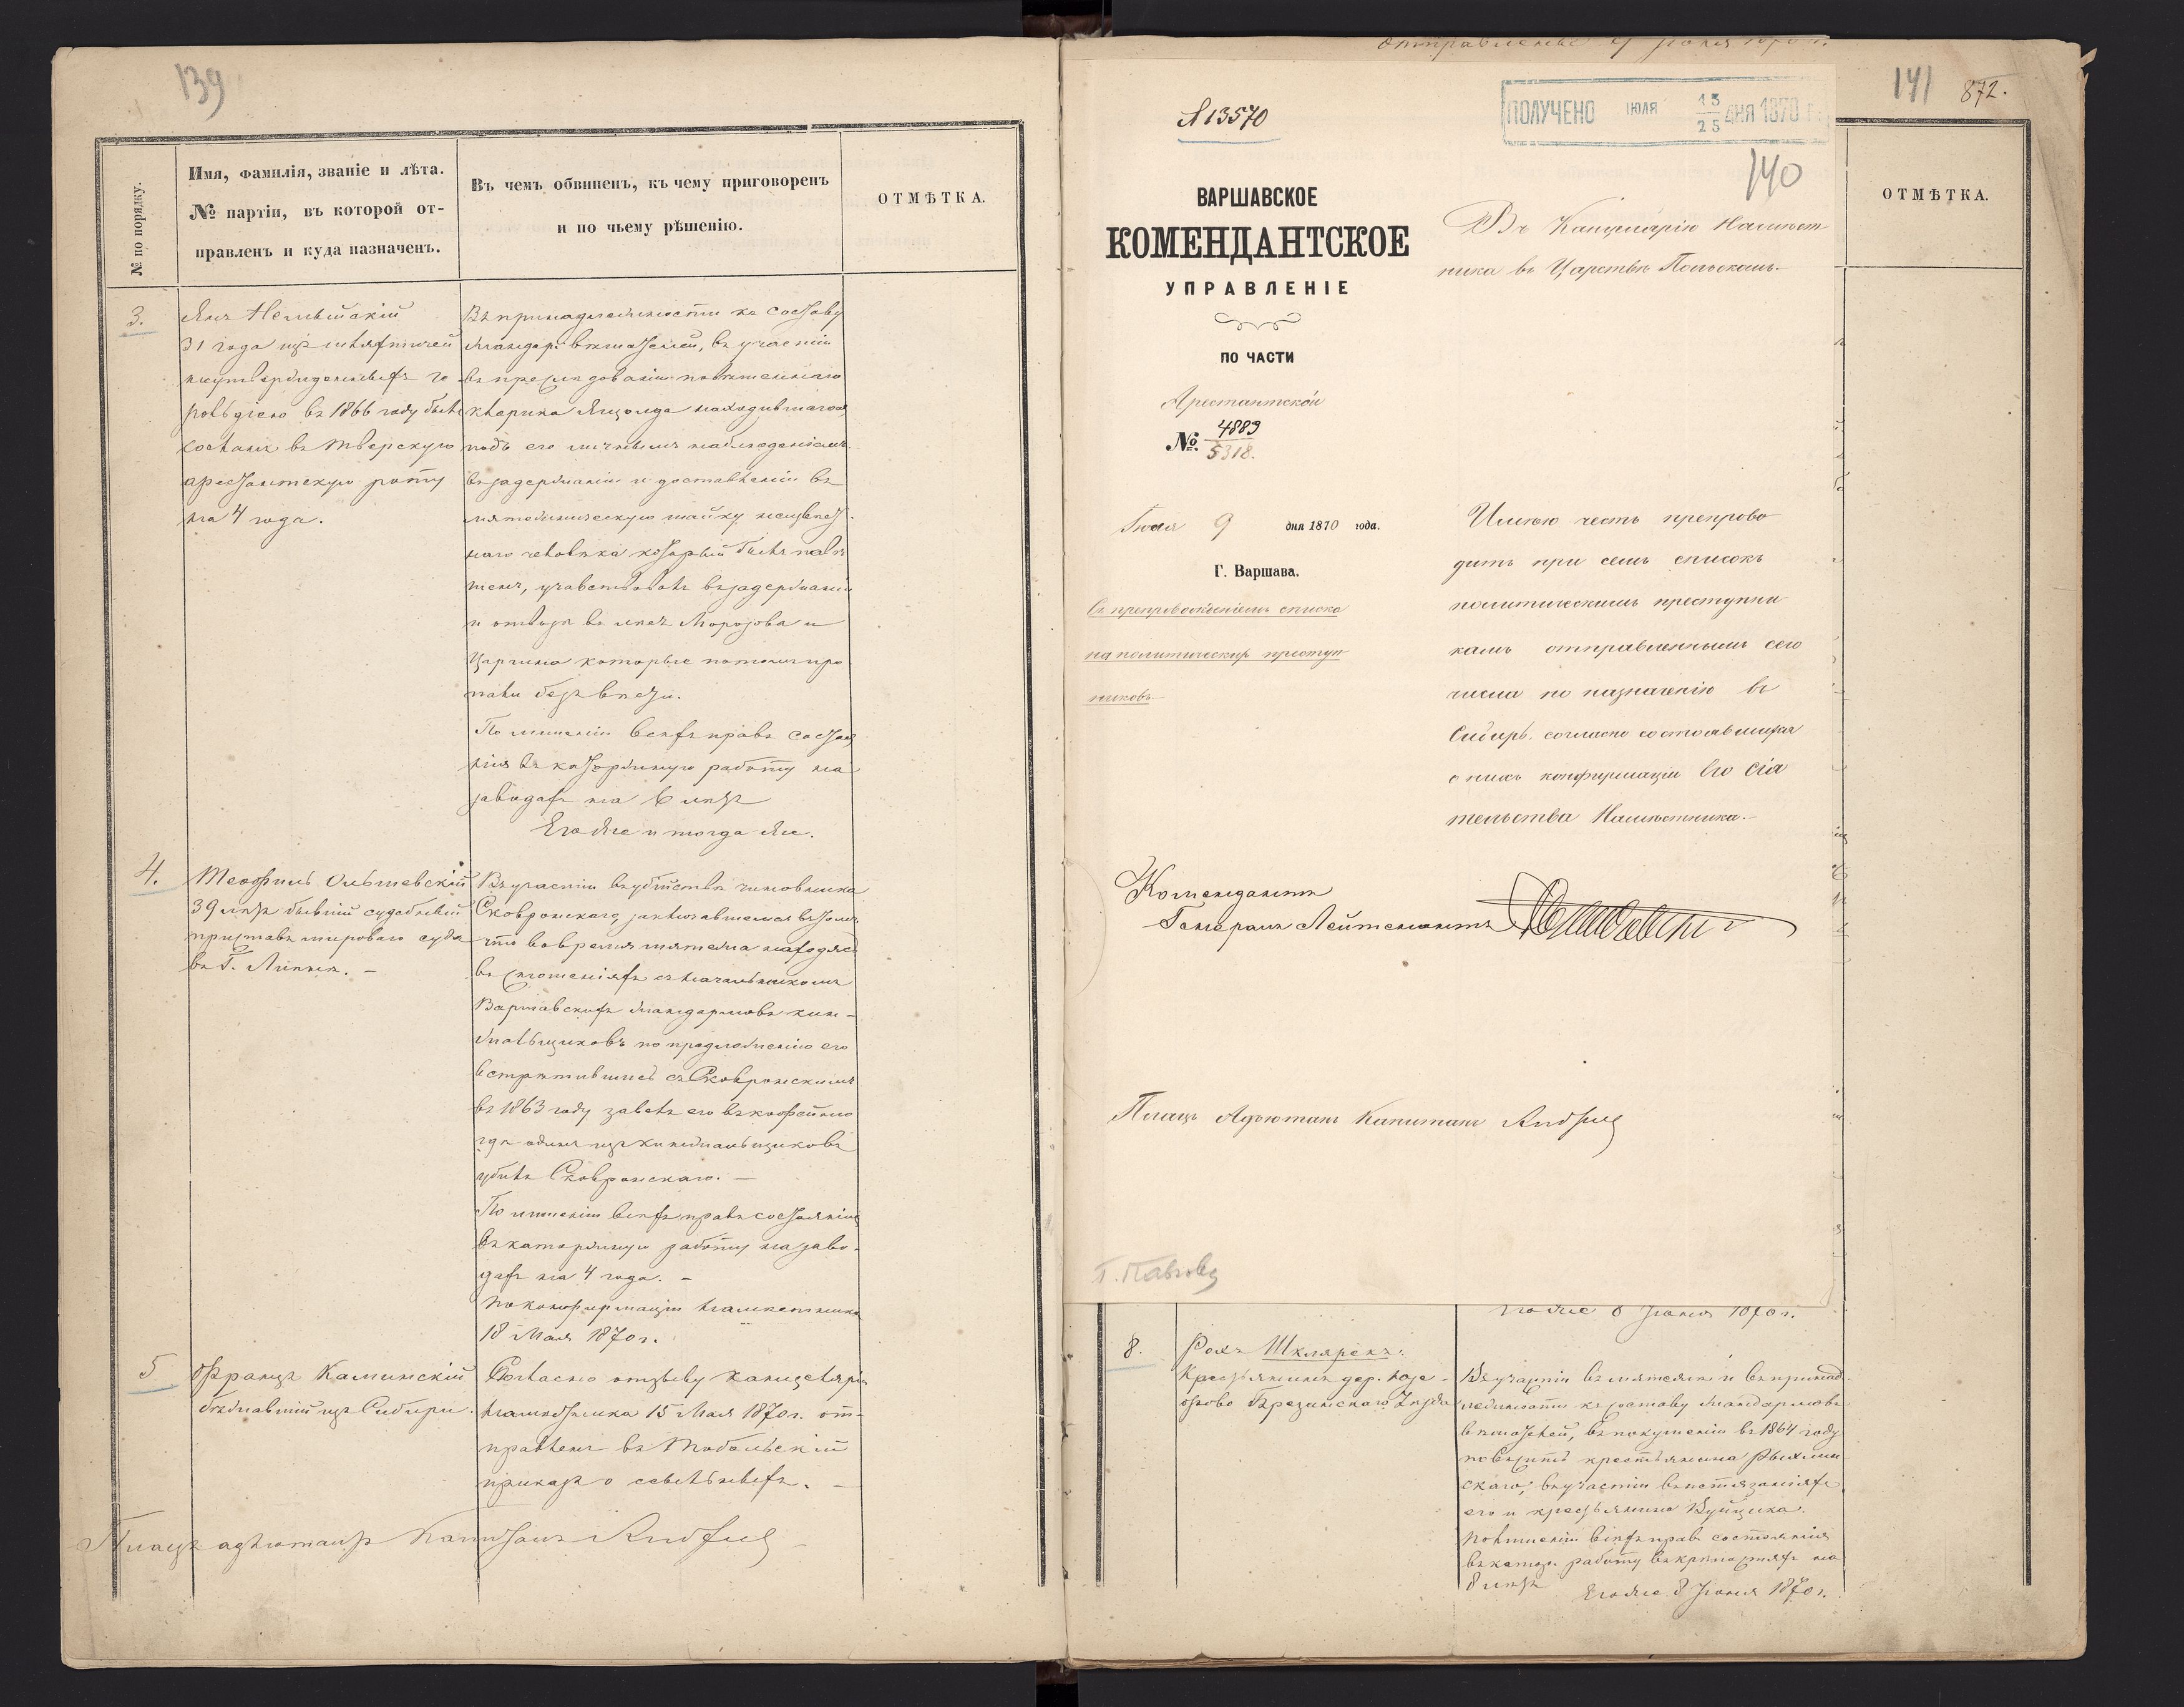 139
№ по порядку.
Имя, фамилія, званіе и лѣта.
№ партіи, въ которой от-
правленъ и куда назначенъ.
Въ чемъ обвиненъ, къ чему приговоренъ
и по чьему рѣшенію.
ОТМѢТКА.
3.
Янъ
31 года изъ шляхтичей
неутвержденныхъ
въ 1866 году былъ
сосланъ въ Тверскую
арестантскую роту
на 4 года.
Въ принадлежности къ составу
жандар. вѣшателей, въ участіи
въ преслѣдованіи повѣшеннаго
находившагося
подъ его личнымъ наблюденіемъ.
въ задержаніи и доставленіи въ
мятежническую шайку неизвѣст-
наго человѣка который былъ повѣ
шенъ, участвовалъ въ задержаніи
и отвозѣ въ лѣсъ Морозова и
которые потомъ про
пали безъ вѣсти.
По лишеніи всѣхъ правъ состоя
нія въ каторжную работу на
заводахъ на 6 лѣтъ
Его же и тогда же.
4.
Теофилъ Ольшевскій
39 лѣтъ бывшій судебный
приставъ мироваго суда
въ Г. Липнѣ. —
Въ участіи въ убійствѣ чиновника
Сковронскаго, заключавшемся въ томъ
что во время мятежа находясь
въ сношеніяхъ съ начальникомъ
Варшавскихъ жандармовъ кин-
жальщиковъ по предложенію его
встрѣтившись съ Сковронскимъ
въ 1863 году завелъ его въ кофейню
гдѣ одинъ изъ кинжальщиковъ
убилъ Сковронскаго. —
По лишеніи всѣхъ правъ состоянія
въ каторжную работу на заво-
дахъ на 4 года. —
По конфирмаціи Намѣстника
18 Мая 1870 г.
5
Францъ Каминскій
бѣжавшій изъ Сибири.
Согласно отзыву Канцеляріи
Намѣстника 15 Мая 1870 г. от-
правленъ въ Тобольскій
приказъ о ссыльныхъ. —
Плацъ адъютантъ Капитанъ
141
872.
ОТМѢТКА.
№ 13570
ПОЛУЧЕНО ІЮЛЯ 13/25 ДНЯ 1870 Г.
140
ВАРШАВСКОЕ
КОМЕНДАНТСКОЕ
УПРАВЛЕНІЕ
ПО ЧАСТИ
Арестантской
№ 4889
5318.
Іюля 9 дня 1870 года.
Г. Варшава.
съ препровожденіемъ списка
на политическихъ преступ
никовъ
Въ Канцелярію Намѣст
ника въ Царствѣ Польскомъ.
Имѣю честь препрово
дить при семъ списокъ
политическимъ преступни
камъ отправленнымъ сего
числа по назначенію въ
Сибирь, согласно состоявшихся
о нихъ конфирмаціи Его Сія
тельства Намѣстника.
Комендантъ
Генералъ Лейтенантъ
Плацъ Адъютантъ Капитанъ
8 Іюня 1870 г.
8.
Рохъ Шкляректъ
Крестьянинъ дер.
Брезинскаго Уѣзда
Въ участіи въ мятежѣ и въ принад-
лежности къ составу жандармовъ
вѣшателей, въ покушеніи въ 1864 году
повѣсить крестьянина
скаго; въ участіи въ истязаніяхъ
его и крестьянина
По лишеніи всѣхъ правъ состоянія
въ катор. работу въ крѣпостяхъ на
8 лѣтъ Его же 8 Іюня 1870 г.